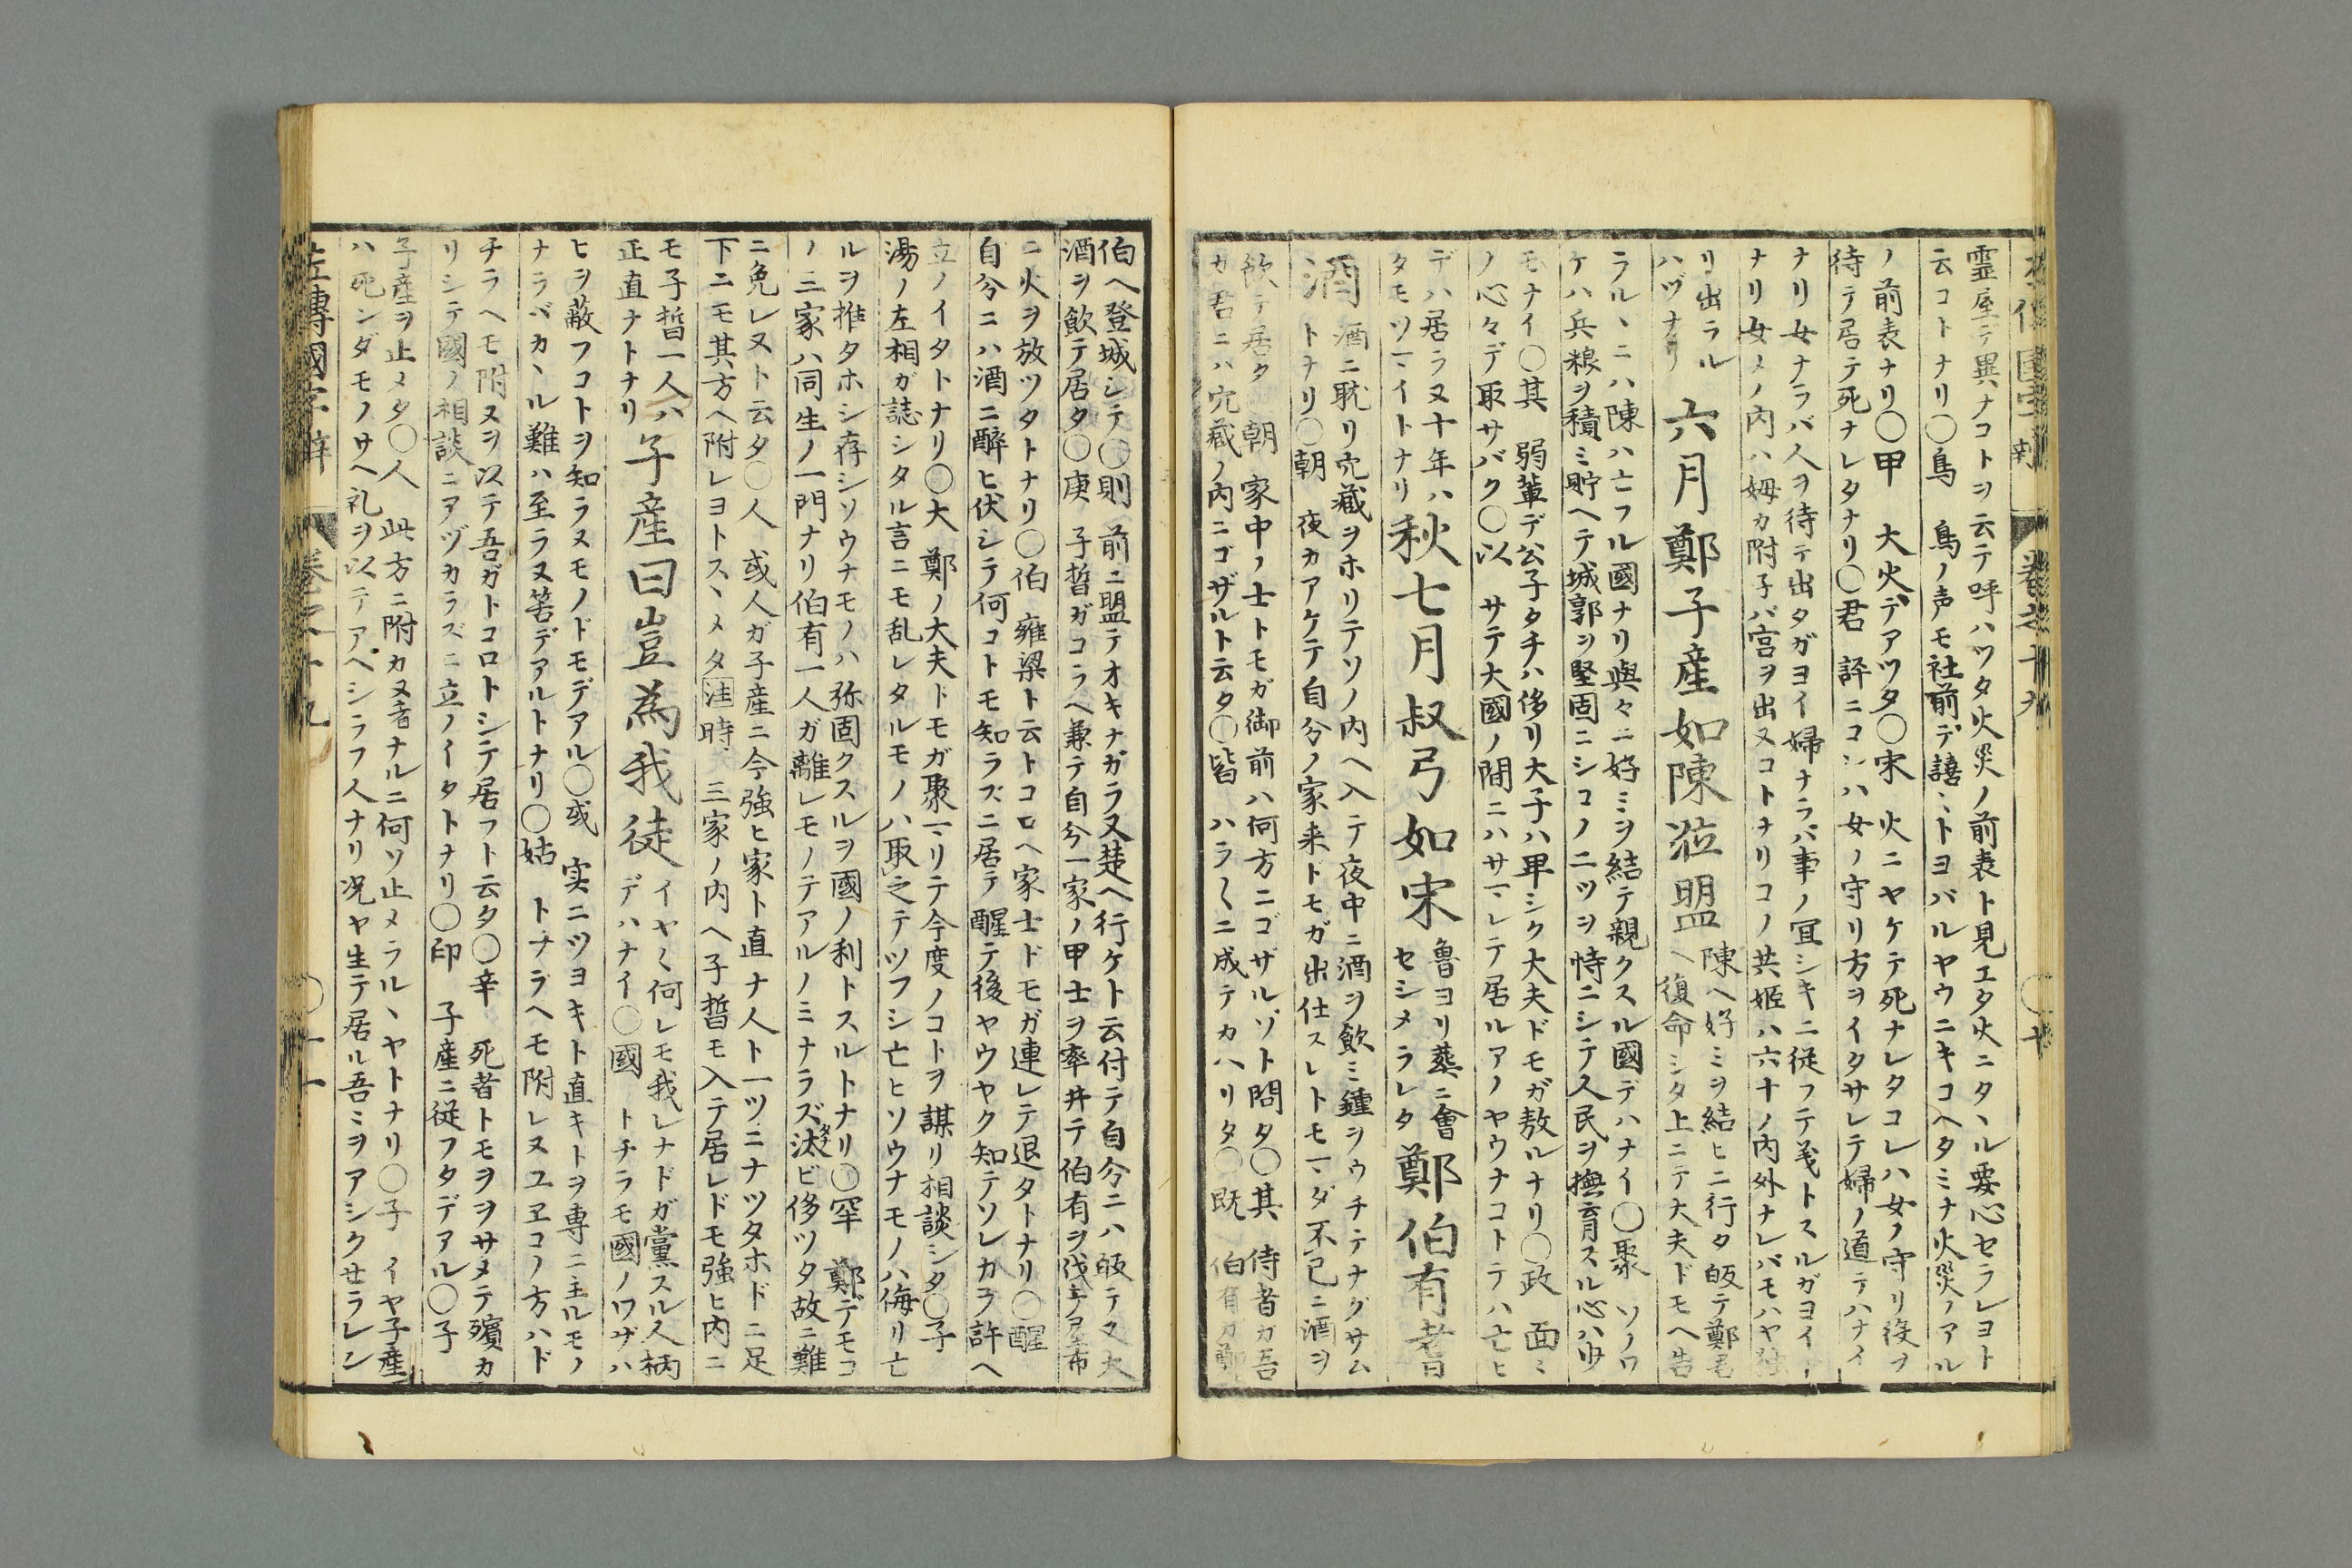 霊屋テ異ナコトヲ云テ呼ハツタ火災ノ前表ト見エタ火ニタヽル要心セラレヨト
云コトナリ○鳥 鳥ノ声モ社前デ譆ミトヨバルヤウニキコヘタミナ火災ノアル
ノ前表ナリ○甲 大火デアツタ○宋 火ニヤケテ死ナレタコレハ女ノ守リ役ヲ
待テ居テ死ナレタナリ○君 評ニコンハ女ノ守リ方ヲイタサレテ婦ノ道テハナイ
ナリ女ナラバ人ヲ待テ出タガヨイ婦ナラバ事ノ冝シキニ従フテ義トスルガヨイ
ナリ女メノ内ハ姆カ附子バ宮ヲ出ヌコトナリコノ共姫ハ六十ノ内外ナレバモハヤ
リ出ラル
ハヅナリ
六月鄭子産如陳涖盟
陳ヘ好ミヲ結ヒニ行タ皈テ鄭君
ヘ復命シタ上ニテ大夫ドモヘ告
ラルヽニハ陳ハ亡フル國ナリ與々ニ好ミヲ結テ親クスル國デハナイ○聚 ソノワ
ケハ兵粮ヲ積ミ貯ヘテ城郭ヲ堅固ニシコノ二ツヲ恃ニシテ人民ヲ撫育スル心ハ少
モナイ○其 弱輩デ公子タチハ侈リ大子ハ卑シク大夫ドモガ敖ルナリ○政 面ミ
ノ心々デ取サバク○以 サテ大國ノ間ニハサマレテ居ルアノヤウナコトテハ亡ヒ
デハ居ラヌ十年ハ
タモツマイトナリ
秋七月叔弓如宋
魯ヨリ葬ニ會
セシメラレタ
鄭伯有耆
酒
酒ニ耽リ穴藏ヲホリテソノ内ヘ入テ夜中ニ酒ヲ飲ミ鍾ヲウチテナグサム
トナリ○朝 夜カアケテ自分ノ家来ドモガ出仕スレトモマダ不已ニ酒ヲ
飲テ居タ 朝 家中ノ士トモガ御前ハ何方ニゴザルゾト問タ○其 侍者カ吾
カ君ニハ穴藏ノ内ニゴザルト云タ○皆 ハラ〱ニ成テカハリタ○既 伯有カ鄭
伯ヘ登城シテ○則 前ニ盟テオキナガラ又楚ヘ行ケト云付テ自分ニハ皈テマ
酒ヲ飲テ居タ○庚 子晢ガコラヘ兼テ自分一家ノ甲士ヲ率井テ伯有ヲ伐
ニ火ヲ放ツタトナリ○伯 雍梁ト云トコロヘ家士ドモガ連レテ退タトナリ○醒
自分ニハ酒ニ醉ヒ伏シテ何コトモ知ラズニ居テ醒テ後ヤウヤク知テソレカラ許ヘ
立ノイタトナリ○大 鄭ノ大夫ドモガ聚マリテ今度ノコトヲ謀リ相談シタ○子
湯ノ左相ガ誌シタル言ニモ乱レタルモノハ取之テツフシ亡ヒソウナモノハ侮リ亡
ルヲ推タホシ存シソウナモノハ弥固クスルヲ國ノ利トスルトナリ○罕 鄭デモコ
ノ三家ハ同生ノ一門ナリ伯有一人ガ離レモノテアルノミナラズ汰ビ侈ツタ故ニ難
ニ免レヌト云タ○人 或人ガ子産ニ今強ヒ家ト直ナ人ト一ツニナツタホドニ足
下ニモ其方ヘ附レヨトスヽメタ 注時 三家ノ内ヘ子晢モ入テ居レドモ強ヒ内ニ
モ子晢一人ハ
正直ナトナリ
子産曰豈為我徒
イヤ〱何レモ我レナドガ黨スル人柄
デハナイ○國 トチラモ國ノワザハ
ヒヲ蔽フコトヲ知ラヌモノドモデアル○或 実ニツヨキト直キトヲ専ニ主ルモノ
ナラバカヽル難ハ至ラヌ筈デアルトナリ○姑 トチラヘモ附レヌユヱコノ方ハド
チラヘモ附ヌヲ以テ吾ガトコロトシテ居フト云タ○辛 死者トモヲヲサメテ殯カ
リシテ國ノ相談ニアヅカラズニ立ノイタトナリ○印 子産ニ従フタデアル○子
子産ヲ止メタ○人 此方ニ附カヌ者ナルニ何ソ止メラルヽヤトナリ○子 イヤ子産
ハ死ンダモノサヘ礼ヲ以テアヘシラフ人ナリ况ヤ生テ居ル吾ミヲアシクせラレン
左傳國字辯 卷之十九 ○十一